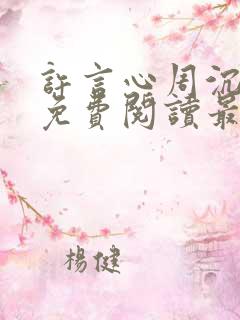 許言心周沉
免費閱讀最
楊健